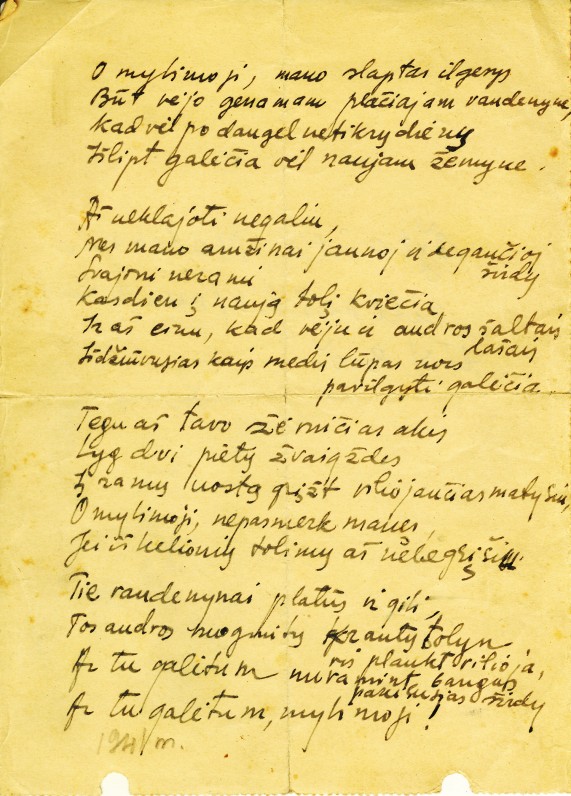 O mylimoji, mano slaptas ilgesys
Būt vėjo genamam plačiajam vandenyne,
Kad vėl po daugel netikrų dienų
Išlipt galėčia vėl naujam žemyne.
Aš neklajoti negaliu,
Nes mano amžinai jaunoj ir degančioj
širdy
Svajonė nerami
Kasdien į naują tolį kviečia
Ir aš einu, kad vėju ir audros šaltais
lašais
Išdžiūvusias kaip medis lūpas nors
pavilgyti galėčia.
Tegu aš tavo žėrinčias akis
Lyg dvi pietų žvaigždes
Į ramų uostą grįžt viliojančias matysiu,
O mylimoji, nepasmerk manęs,
Jei iš kelionių tolimų aš nebegrįšiu.
Tie vandenynai platūs ir gilūs,
Tos audros nuo gimtų krantų tolyn
vis plaukt vilioja,
Ar tu galėtum nuraminti bangas
pakilusias širdy
Ar tu galėtum, mylimoji!
1941 m.